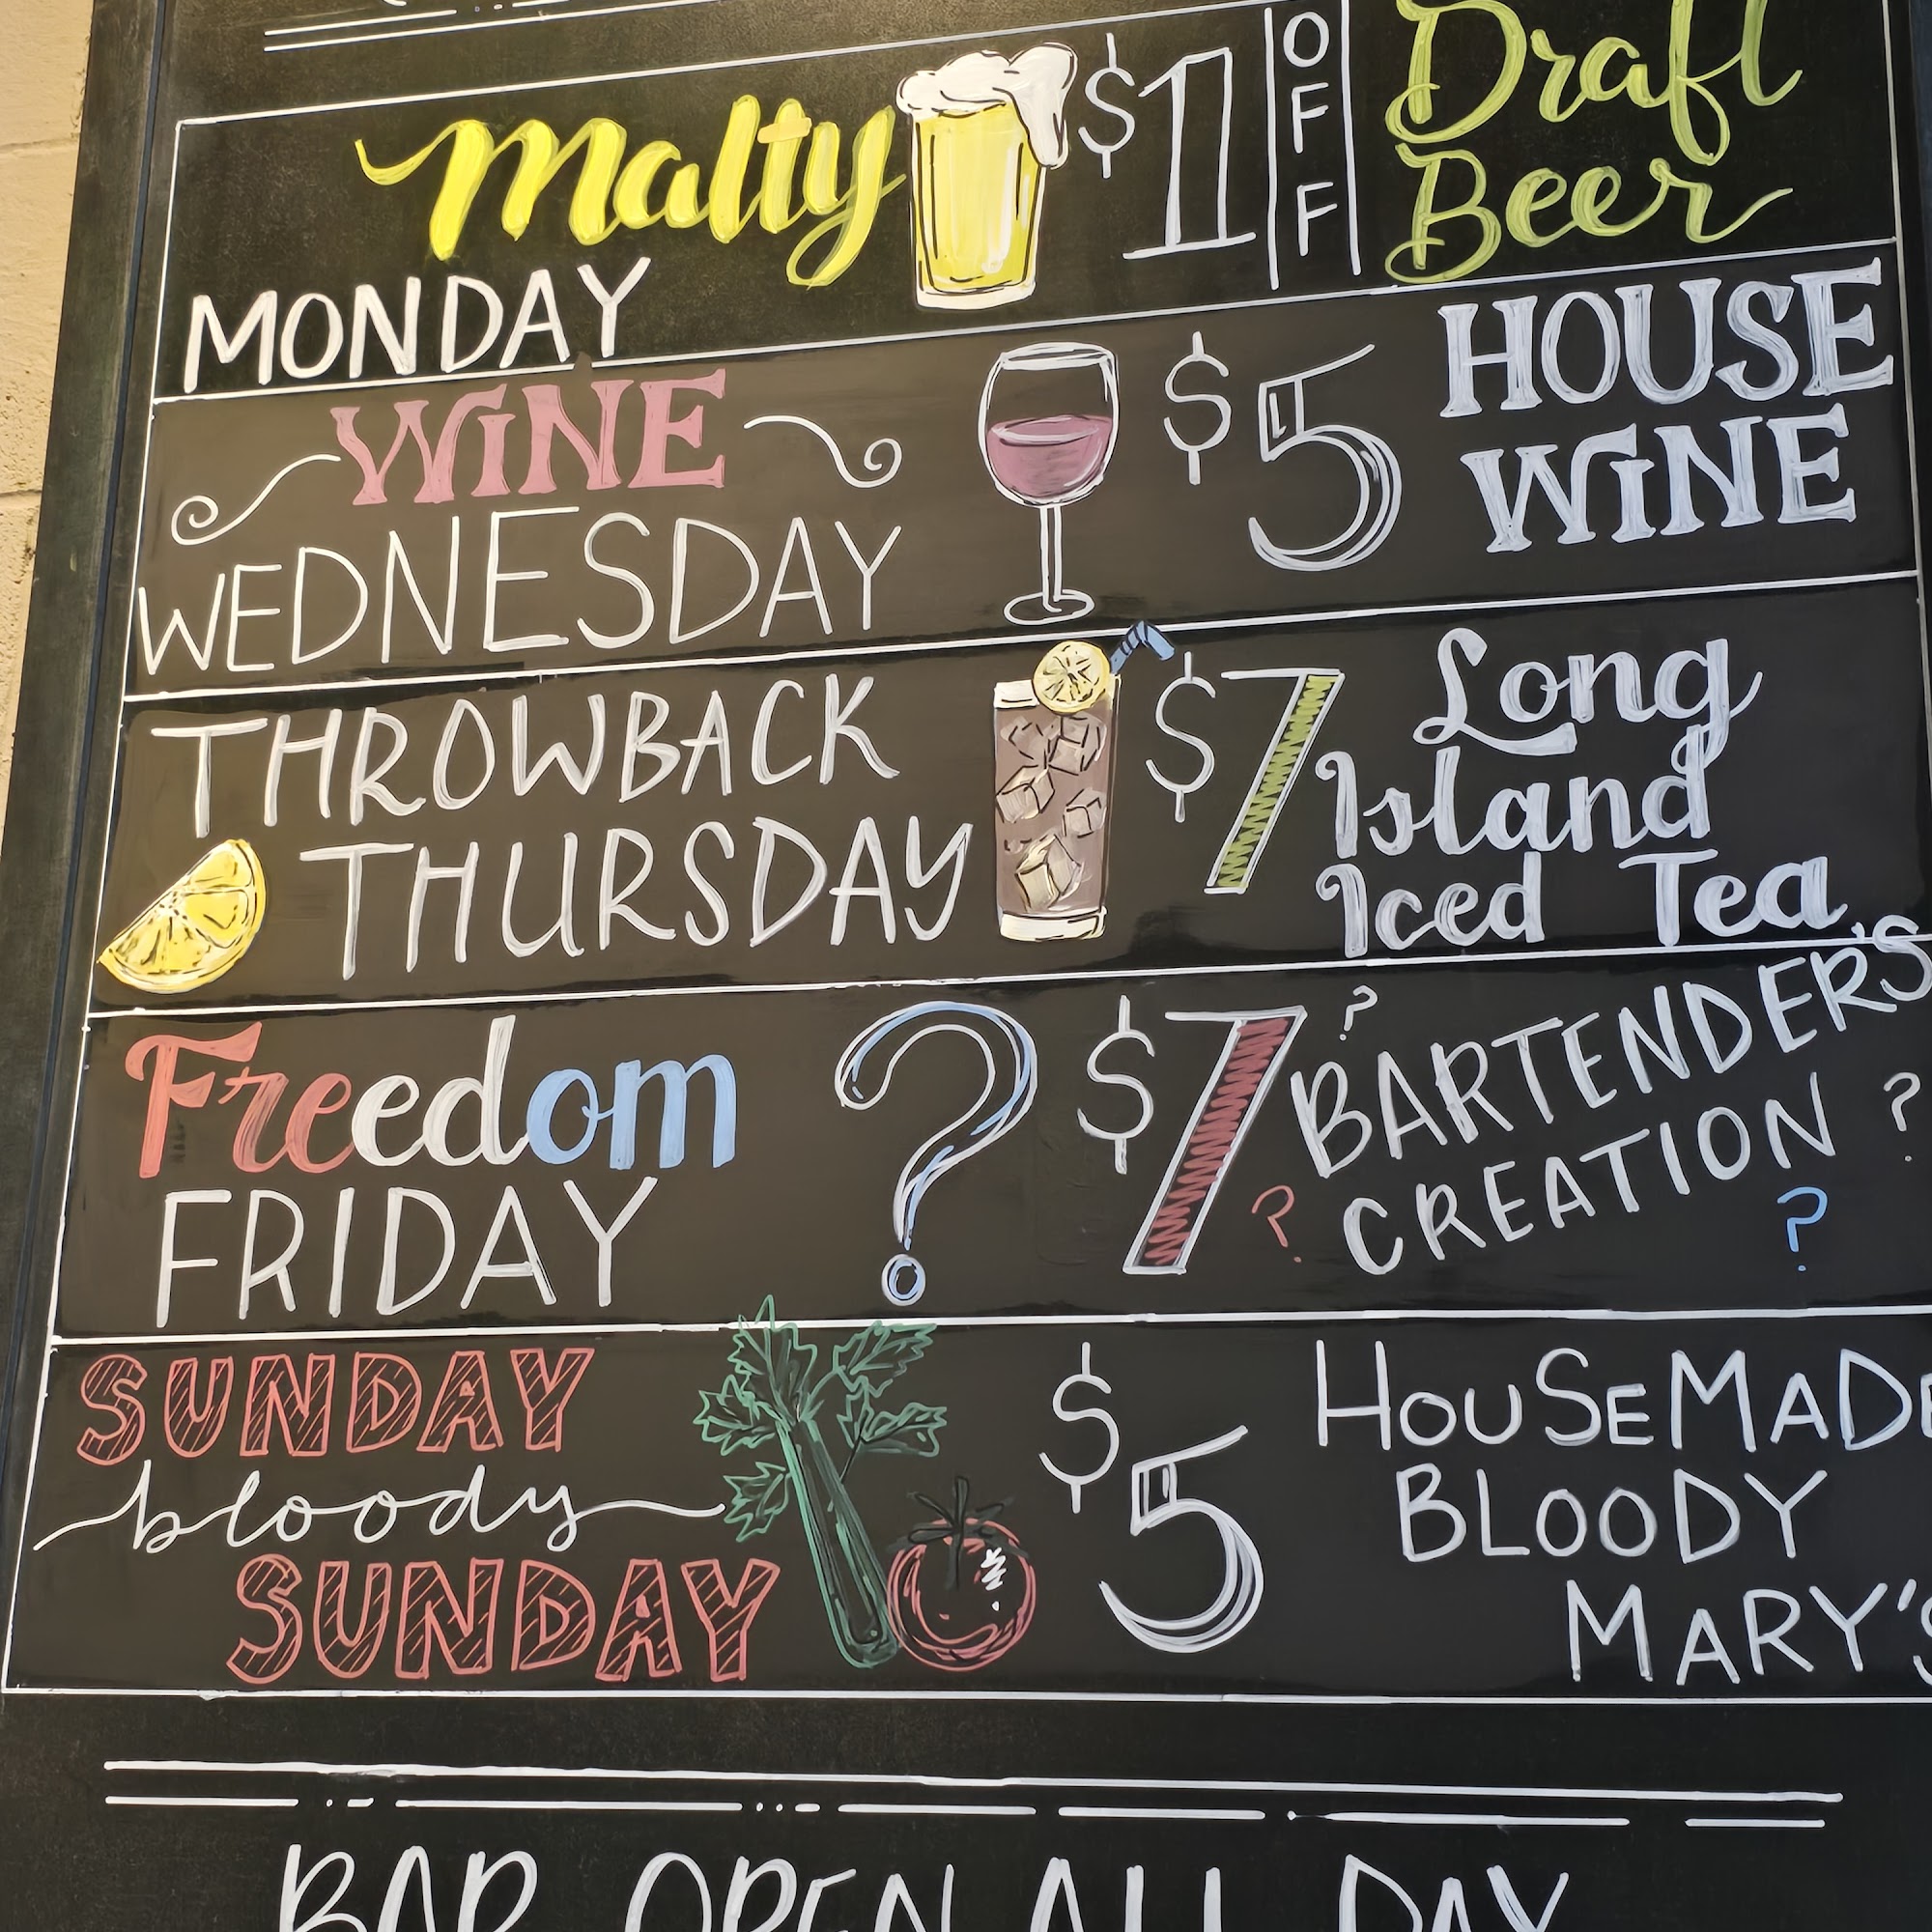 Malty
MONDAY
$1 OFF
Draft
Beer
WINE
WEDNESDAY
$5
HOUSE
WINE
THROWBACK
THURSDAY
$7
Long
Island
Iced Tea
Freedom
FRIDAY
?
$7
? BARTENDER'S
CREATION ?
? ?
SUNDAY
bloody
SUNDAY
$5
HOUSEMADE
BLOODY
MARY'S
BAR OPEN ALL DAY